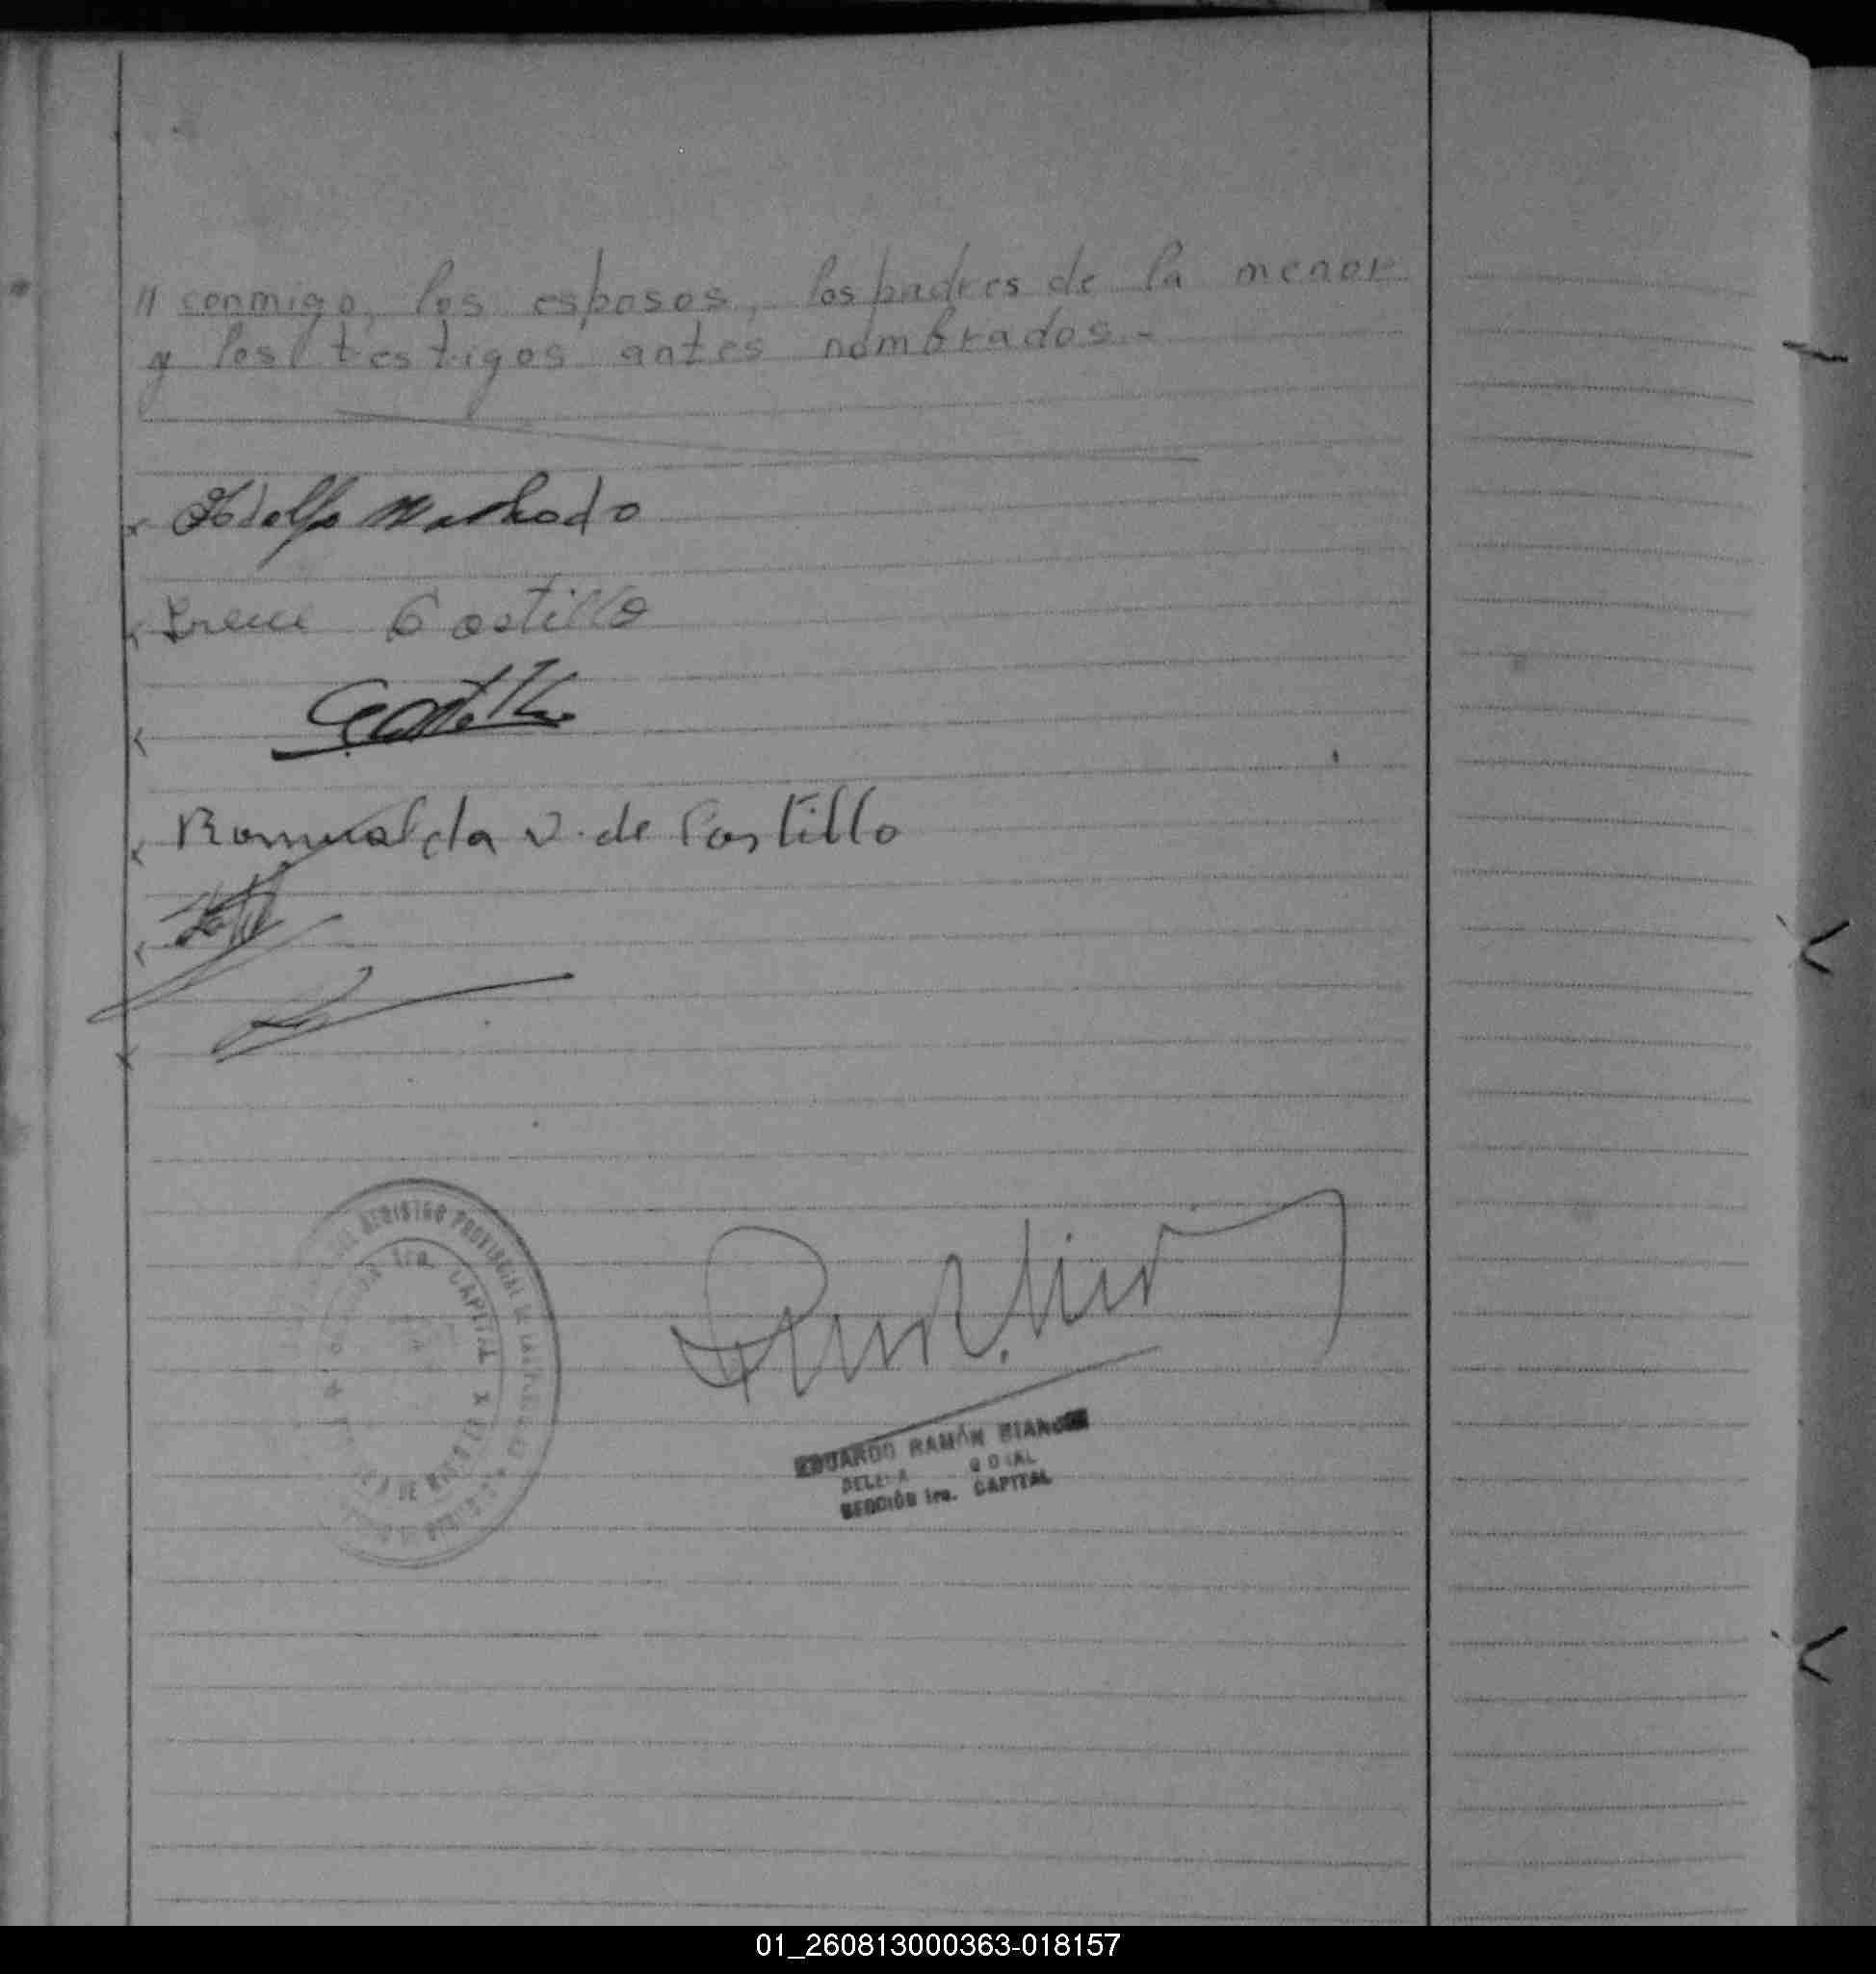 // conmigo, los esposos, los padres de la menor
y los testigos antes nombrados.-
Adolfo Machado
Irene Castillo
Castillo
Romualda V. de Castillo
REGISTRO PROVINCIAL DE LAS
1ra. CAPITAL
EDUARDO RAMÓN
SECCIÓN 1ra. CAPITAL
01_260813000363-018157